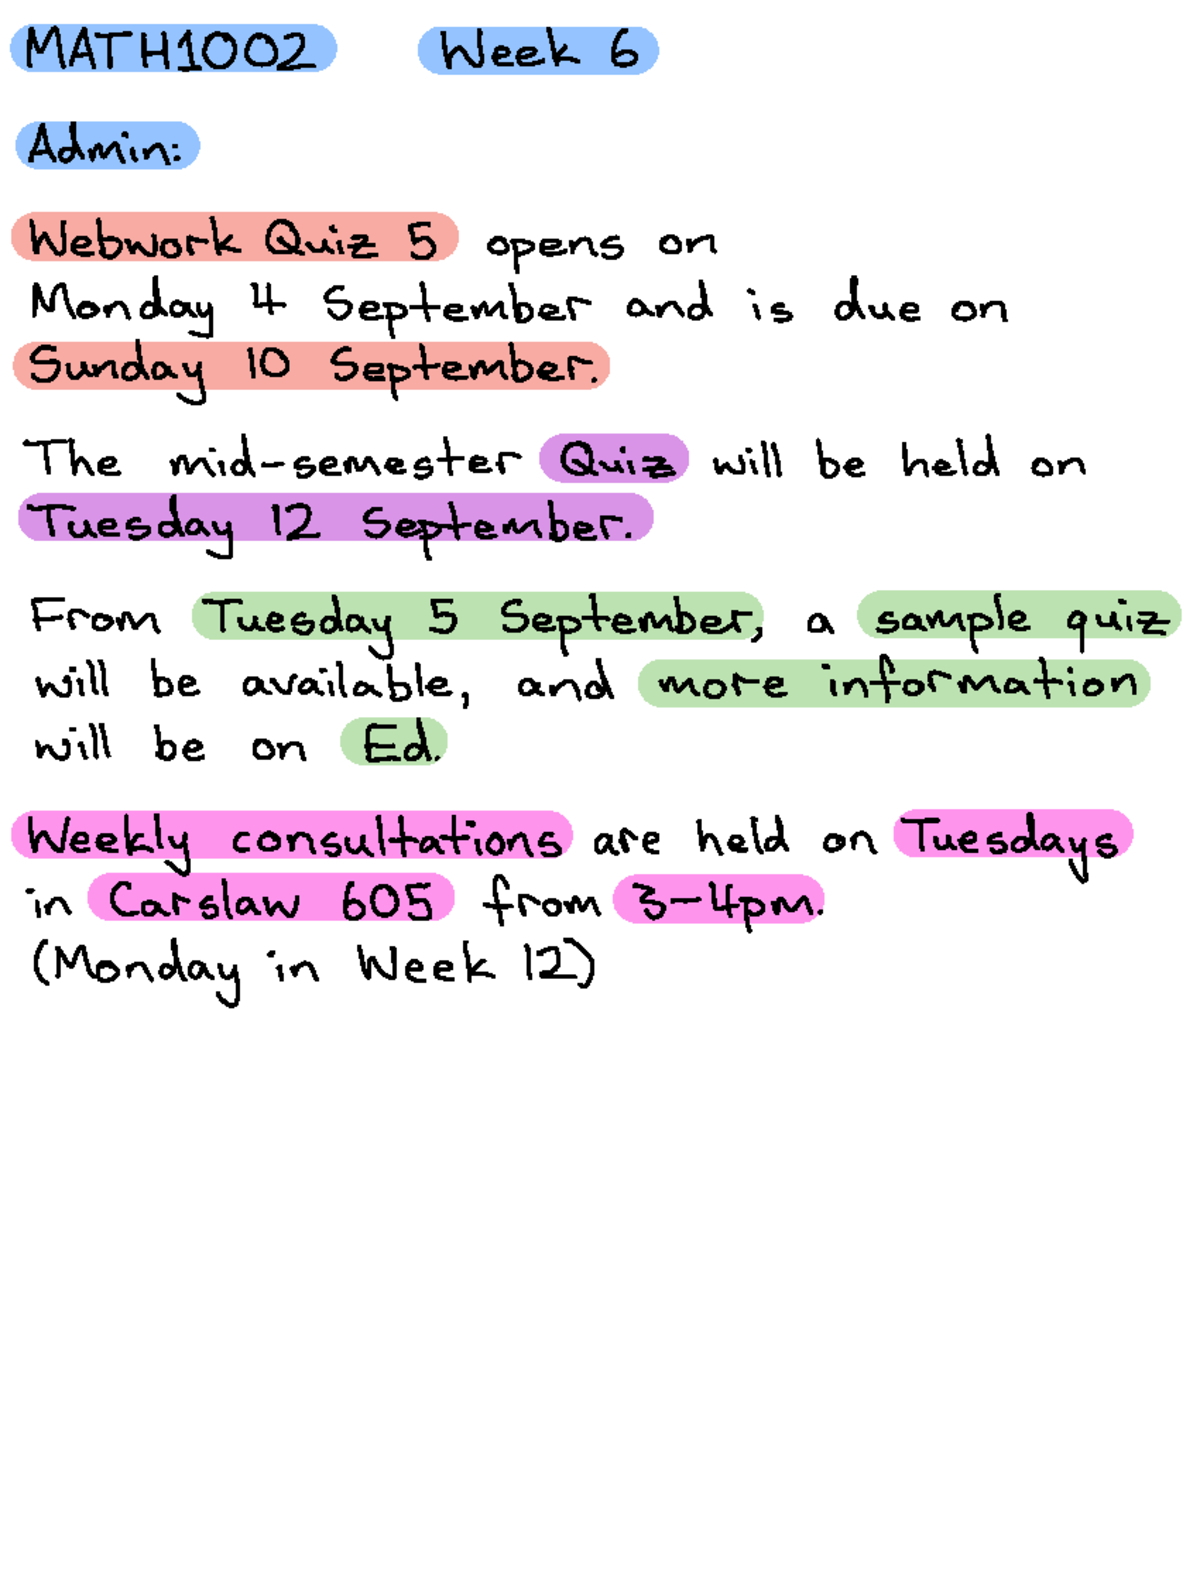 MATH1002 Week 6
Admin:
Webwork Quiz 5 opens on
Monday 4 September and is due on
Sunday 10 September.
The mid-semester Quiz will be held on
Tuesday 12 September.
From Tuesday 5 September, a sample quiz
will be available, and more information
will be on Ed.
Weekly consultations are held on Tuesdays
in Carslaw 605 from 3-4pm.
(Monday in Week 12)